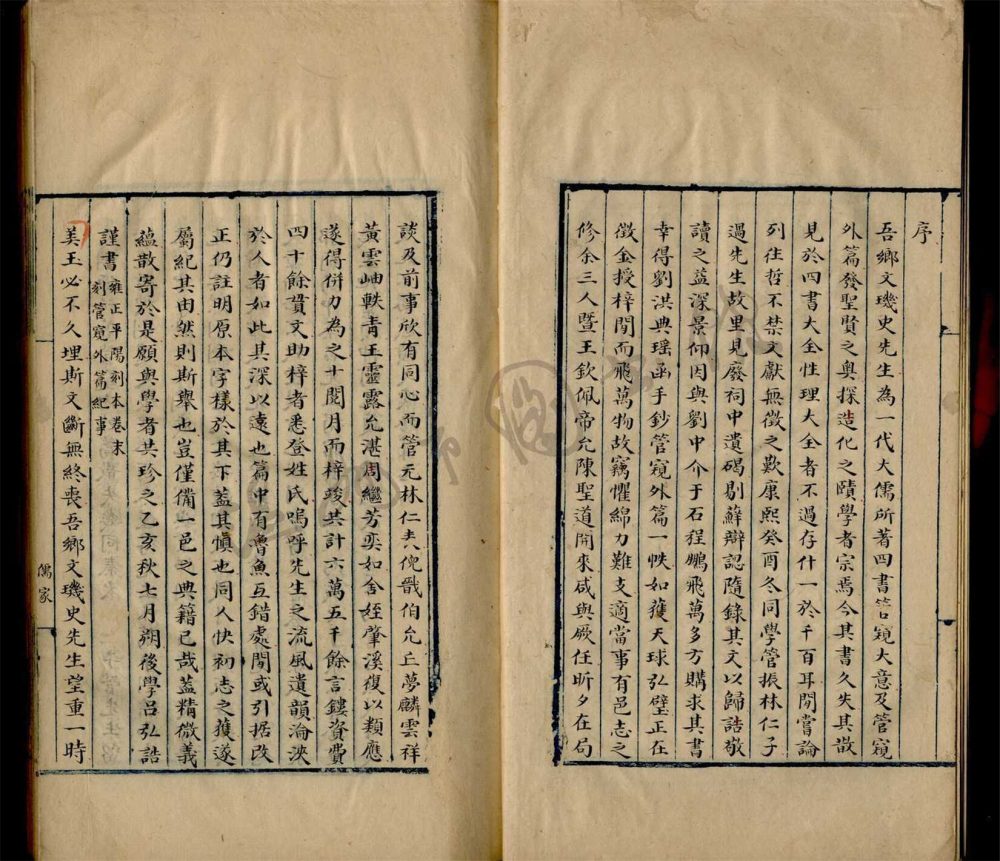 序
吾鄉文璣史先生為一代大儒所著四書管窺大意及管窺
外篇發聖賢之奧探造化之賾學者宗焉今其書久失其散
見於四書大全性理大全者不過存什一於千百耳閒嘗論
列往哲不禁文獻無徵之歎康熙癸酉冬同學管振林仁子
過先生故里見廢祠中遺碣剔蘚辯認隨錄其文以歸誥敬
讀之益深景仰因與劉中介于石程鵬飛萬多方購求其書
幸得劉洪典瑶函手鈔管窺外篇一帙如獲天球弘璧正在
徵金授梓閒而飛萬物故竊懼綿力難支適當事有邑志之
修余三人暨王欽佩帝允陳聖道開來咸與厥任昕夕在局
談及前事欣有同心而管元林仁夫倪戩伯允丘夢麟雲祥
黃雲岫軼青王靈露允湛周繼芳奕如舍姪肇溪復以類應
遂得併力為之十閱月而梓竣共計六萬五千餘言鏤資費
四十餘貲文助梓者悉登姓氏嗚呼先生之流風遺韻淪浹
於人者如此其深以遠也篇中有魯魚互錯處閒或引据改
正仍註明原本字樣於其下蓋其慎也同人快初志之獲遂
屬紀其由然則斯舉也豈僅備一邑之典籍已哉蓋精微義
蘊散寄於是願與學者共珍之乙亥秋七月朔後學呂弘誥
謹書雍正平陽刻本卷末
刻管窺外篇紀事
美玉必不久埋斯文斷無終喪吾鄉文璣史先生望重一時
儒家